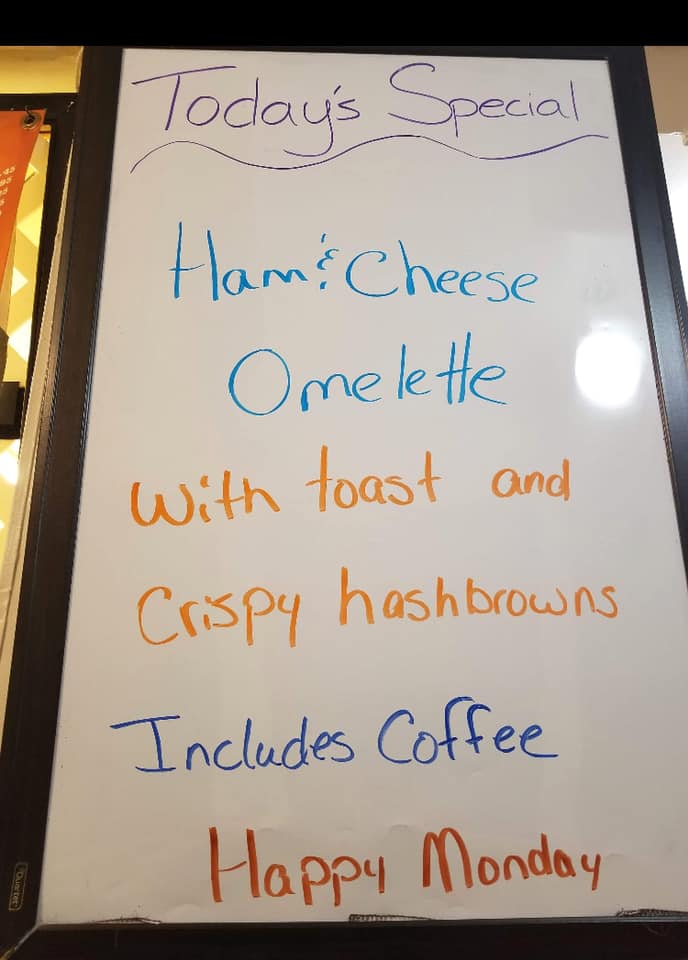 Today's Special
Ham & Cheese
Omelette
With toast and
Crispy hashbrowns
Includes Coffee
Happy Monday
Quartet